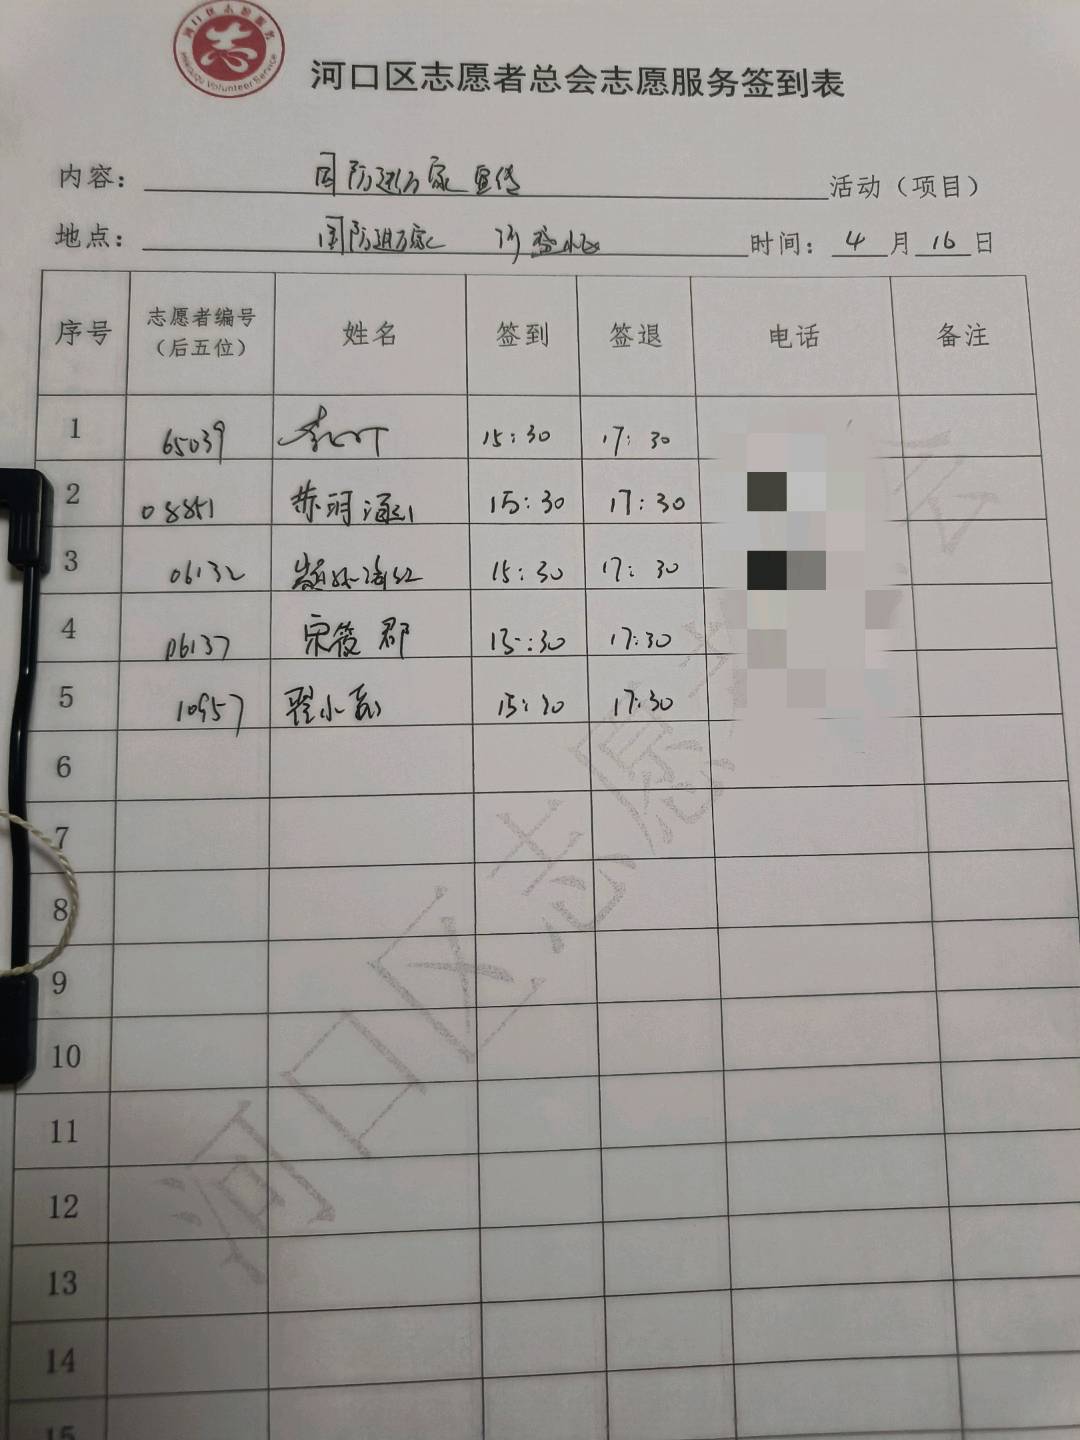 河口区志愿服务
Hekouqu Volunteer Service
河口区志愿者总会志愿服务签到表
内容： 国防进万家宣传 活动（项目）
地点： 国防进万家 时间： 4 月 16 日
序号 志愿者编号（后五位） 姓名 签到 签退 电话 备注
1 65039 15:30 17:30
2 08851 15:30 17:30
3 06132 15:30 17:30
4 06137 宋筱郡 15:30 17:30
5 10957 翟小磊 15:30 17:30
6
7
8
9
10
11
12
13
14
15
河口区志愿者总会